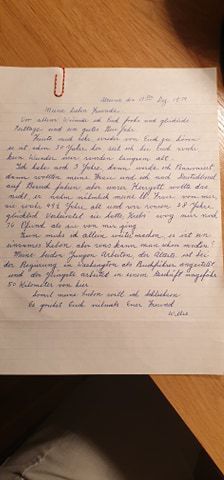 den 11ten Dez. 1979
Meine lieben Freunde.
Vor allem Wünsche ich Euch frohe und glückliche
Festtage und ein gutes Neu Jahr.
Heute mal etwas von Euch zu hören
es ist etwa 20 Jahre her seit ich bei Euch
kein Wunder wir wurden langsam alt.
Ich habe noch 3 Jahre dann werde ich Pensioniert
dann wollten meine Frau und ich nach Deutschland
auf Besuch fahren aber unser Herrgott wollte das
nicht, er nahm nämlich meine lb. Frau von mir,
sie wurde 49 Jahre alt und wir waren 28 Jahre
glücklich Verheiratet sie hatte Krebs wog nur noch
70 Pfund als sie von mir ging
Nun muss ich allein weiter machen, es ist ein
einsames Leben aber was kann man schon machen?
Meine beiden Jungen Arbeiten, der Älteste ist bei
der Regierung in Washington als Buchführer angestellt
und der Jüngste arbeitet in einem Geschäft ungefähr
50 Kilometer von hier.
Somit meine Lieben will ich schliessen
Es grüsst Euch vielmals Euer Freund
Willi